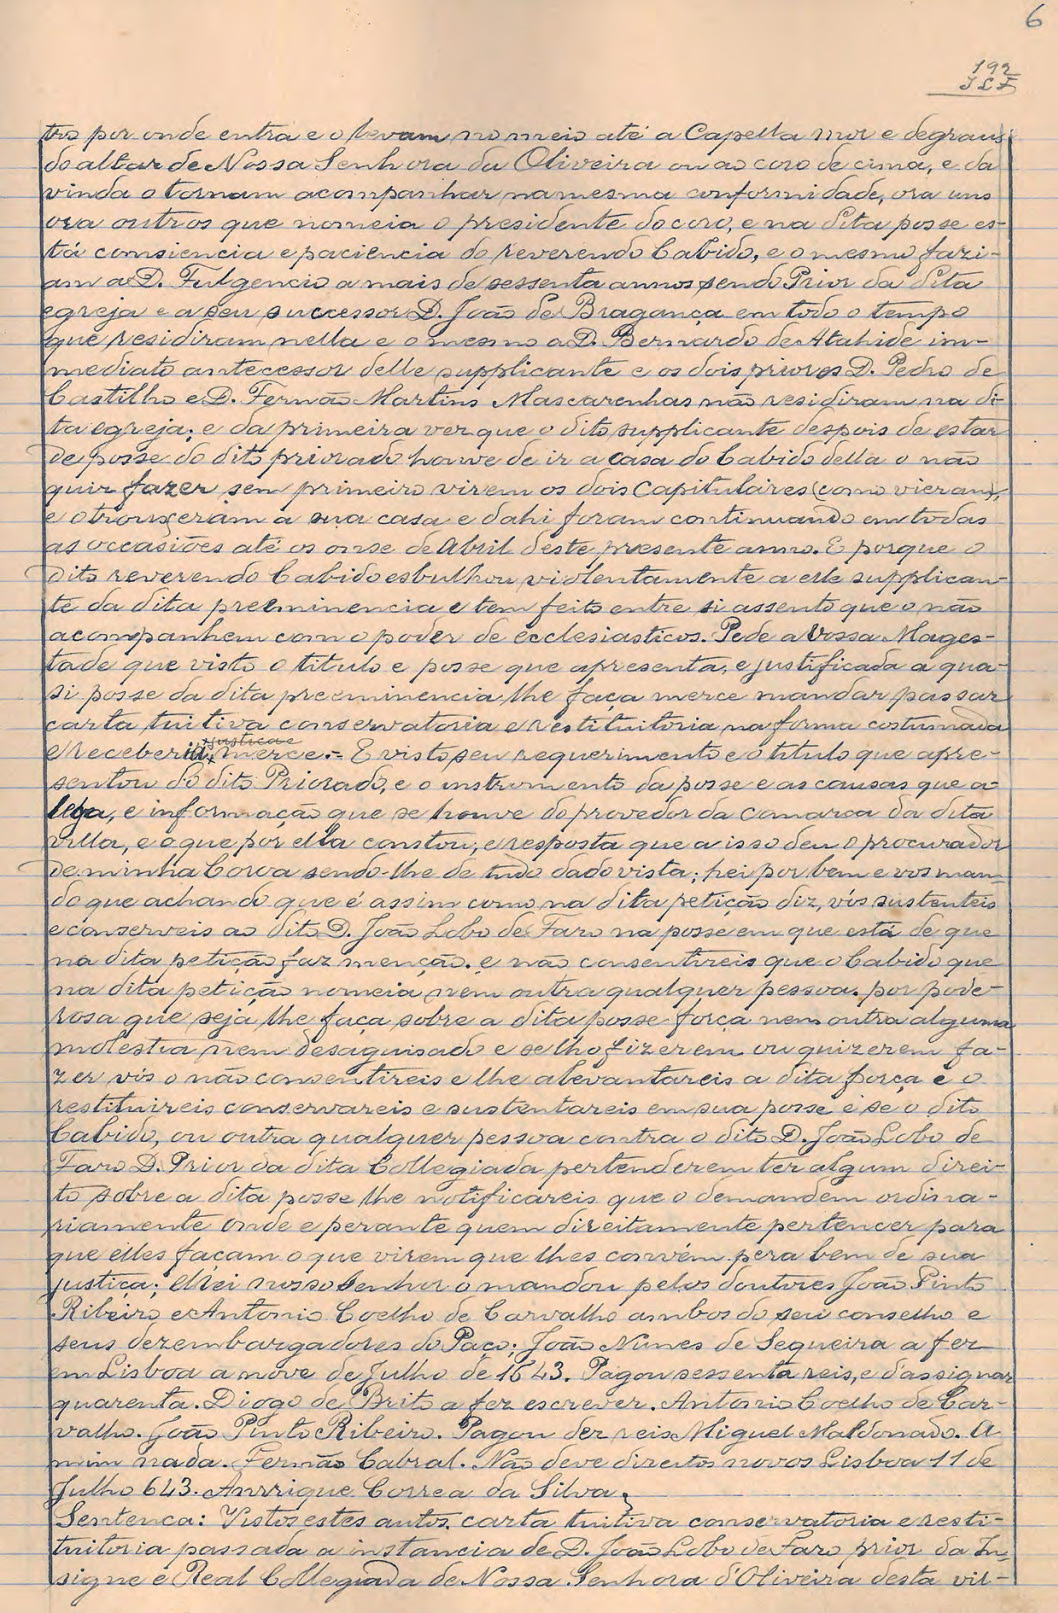 6
192
tro por onde entra e o levam no meio até a Capella mor e degraus
do altar de Nossa Senhora da Oliveira ou ao coro de cima, e da
vinda o tornam acompanhar na mesma conformidade, ora uns
ora outros que nomeia o presidente do coro, e na dita posse es-
tá comsiencia e paciencia do reverendo Cabido, e o mesmo fazi-
am a D. Fulgencio a mais de sessenta annos sendo Prior da dita
egreja e a seu successor D. João de Bragança em todo o tempo
que residiram nella e o mesmo a D. Bernardo de Atahide im-
mediato antecessor delle supplicante e os dois priores D. Pedro de
Castilho e D. Fernão Martins Mascarenhas não residiram na di-
ta egreja; e da primeira vez que o dito supplicante despois de estar
de posse do dito priorado houve de ir a casa do Cabido della o não
quiz fazer sem primeiro virem os dois Capitulares (como vieram),
e o trouxeram a sua casa e dahi foram continuando em todas
as occasiões até os onse de Abril deste presente anno. E porque o
dito reverendo Cabido esbulhou violentamente a elle supplican-
te da dita preeminencia e tem feito entre si assento que o não
acompanhem com o poder de ecclesiasticos. Pede a Vossa Mages-
tade que visto o titulo e posse que apresenta, e justificada a qua-
si posse da dita preeminencia lhe faça merce mandar passar
carta tuitiva conservatoria e restituitoria na forma costumada
e receberá justica e merce.- E visto seu requerimento e o titulo que apre-
sentou do dito Priorado, e o instromento da posse e as causas que a-
lega, e informação que se houve do provedor da comarca da dita
villa, e o que por ella constou, e resposta que a isso deu o procurador
de minha Coroa sendo-lhe de tudo dado vista; hei por bem e vos man-
do que achando que é assim como na dita petição diz, vós sustenteis
e conserveis ao dito D. João Lobo de Faro na posse em que está de que
na dita petição faz menção. e não consentireis que o Cabido que
na dita petição nomeia, nem outra qualquer pessoa. por pode-
rosa que seja lhe faça sobre a dita posse força nem outra alguma
molestia nem desaguisado e se lho fizerem ou quizerem fa-
zer vós o não consentireis e lhe alevantareis a dita força e o
restituireis conservareis e sustentareis em sua posse e se o dito
Cabido, ou outra qualquer pessoa contra o dito D. João Lobo de
Faro D. Prior da dita Collegiada pertenderem ter algum direi-
to sobre a dita posse lhe notificareis que o demandem ordina-
riamente onde e perante quem direitamente pertencer para
que elles façam o que virem que lhes convém pera bem de sua
justiça; El rei nosso senhor o mandou pelos doutores João Pinto
Ribeiro e Antonio Coelho de Carvalho ambos do seu conselho e
seus dezembargadores do Paço; João Nunes de Sequeira a fez
em Lisboa a nove de Julho de 1643. Pagou sessenta reis, e d'assignar
quarenta. Diogo de Brito a fez escrever. Antonio Coelho de Car-
valho. João Pinto Ribeiro. Pagou dez reis Miguel Maldonado. A
mim nada. Fernão Cabral. Não deve direitos novos Lisboa 11 de
Julho 643. Anrrique Correa da Silva;
Sentenca: Vistos estes autos. carta tuitiva conservatoria e resti-
tuitoria passada a instancia de D. João Lobo de Faro prior da In-
signe e Real Collegiada de Nossa Senhora d'Oliveira desta vil-